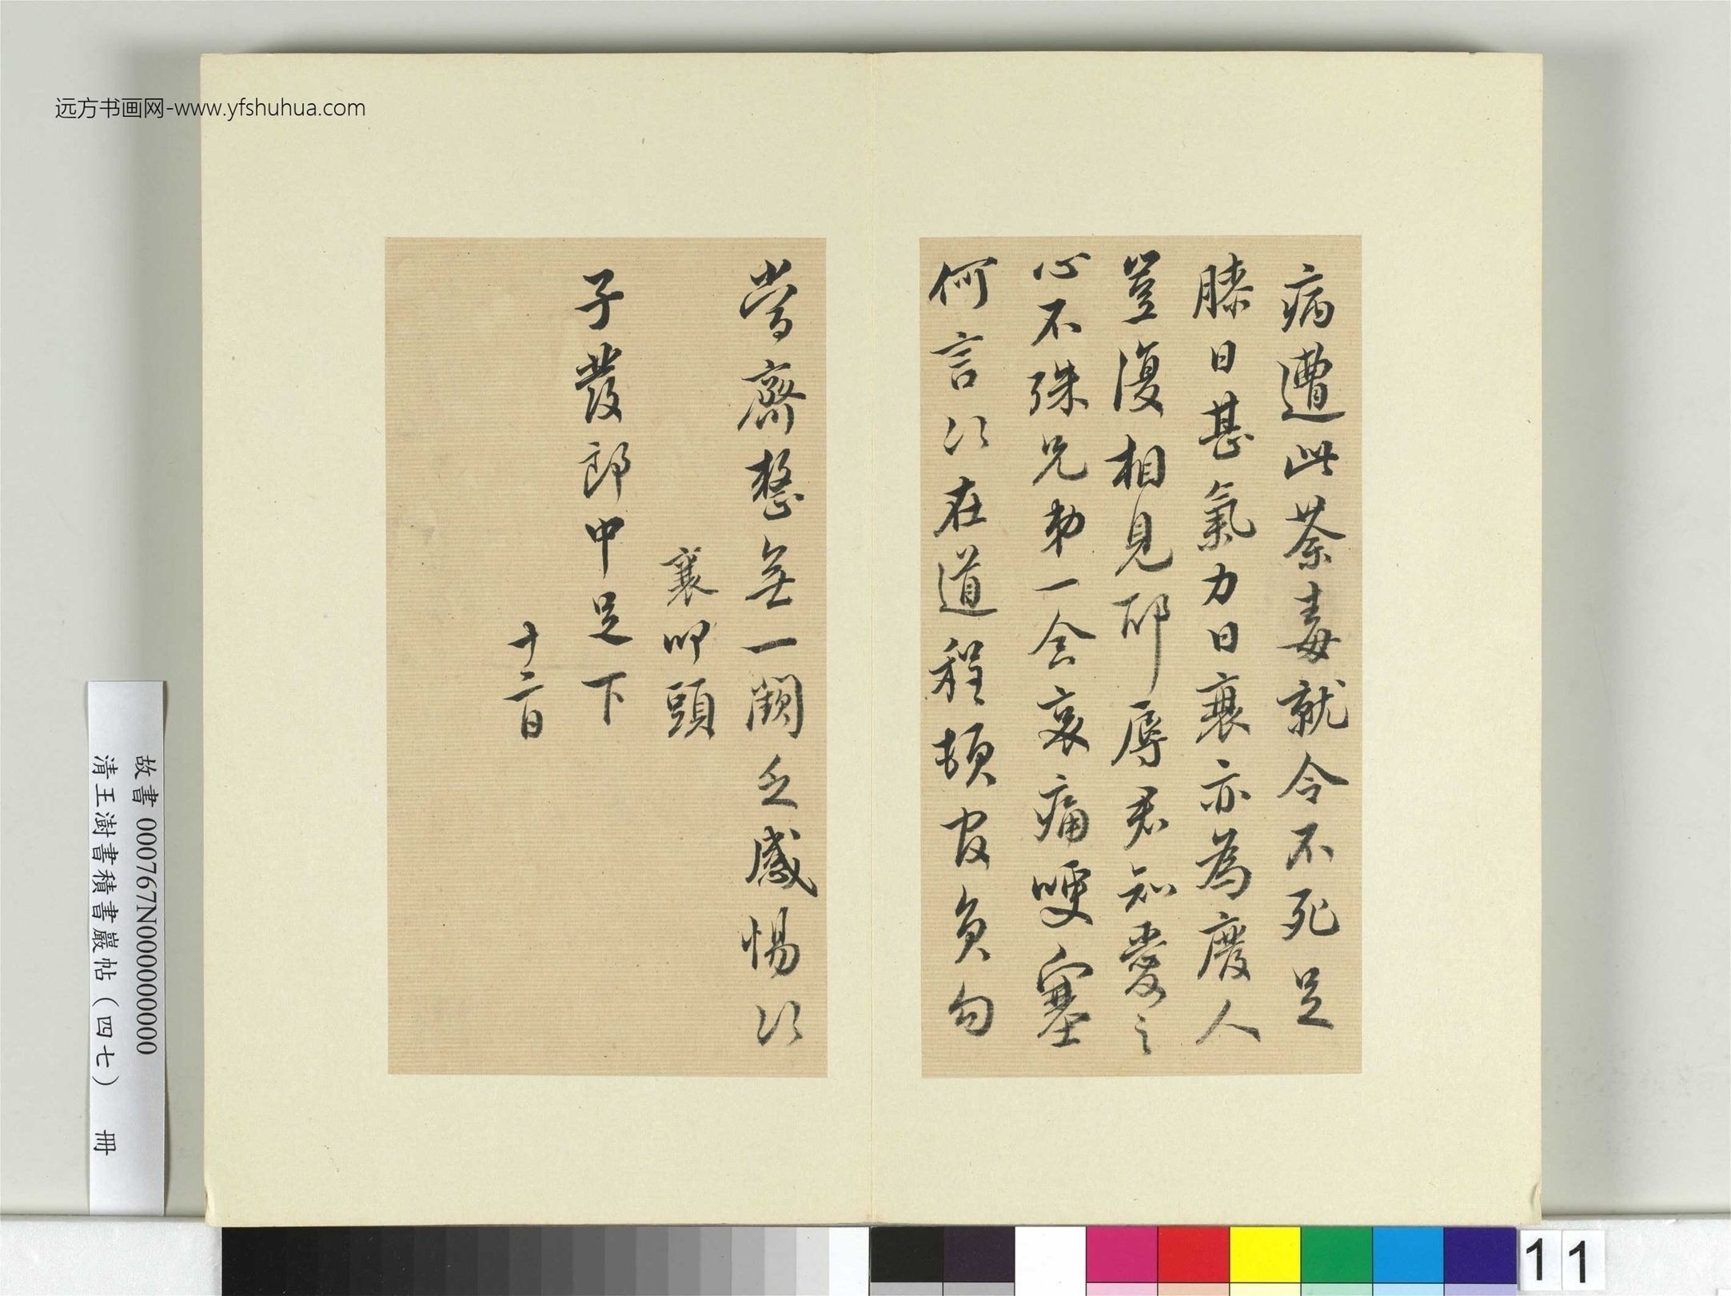 病遭此荼毒就令不死足
膝日甚氣力日衰亦為廢人
豈復相見邪辱君知愛之
心不殊兄弟一念哀痛哽塞
何言以在道程頓皆負勾
當齊整無一闕乏感惕以
襄叩頭
子發郎中足下
十二日
故書 000767N000000000
清王澍書積書巖帖（四七） 冊
远方书画网-www.yfshuhua.com
11